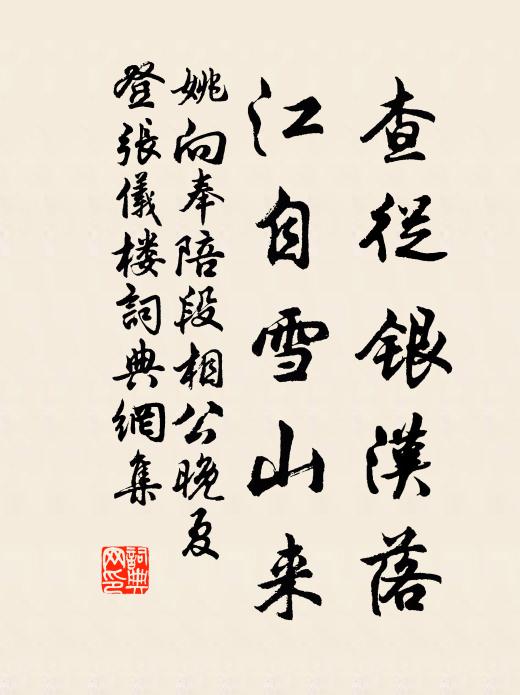 查從銀漢落
江自雪山来
姚向奉陪段相公晚夏
登張儀楼詞典網集
詞典网印